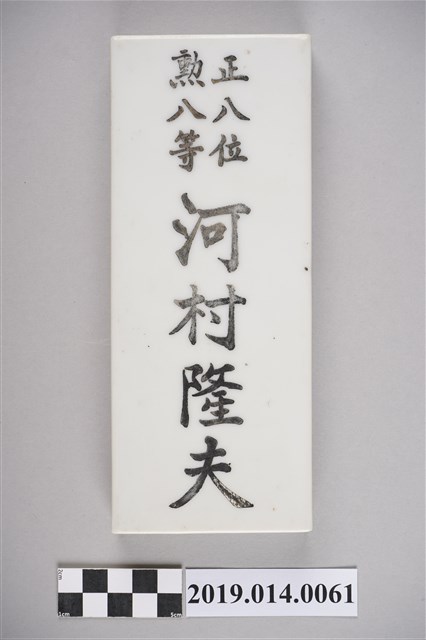 正八位
勲八等
河村隆夫
2cm
1cm
5cm
2019.014.0061